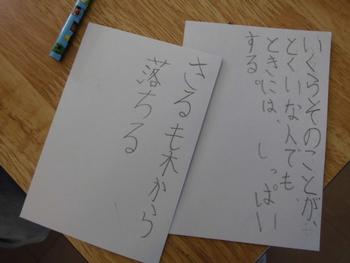 いくらそのことが、
とくいな人でも
ときには、しっぱい
する
さるも木から
落ちる